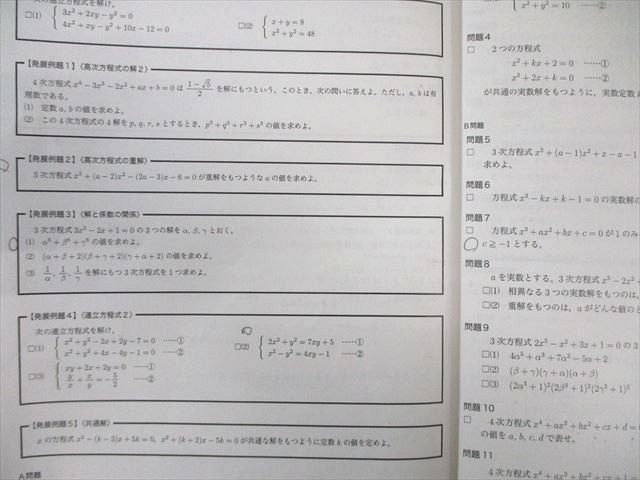 次の連立方程式を解け。
□(1) { 3x² + 2xy − y² = 0
4x² + xy − y² + 10x − 12 = 0
□(2) { x + y = 8
x² + y² = 48
【発展例題1】〈高次方程式の解2〉
4次方程式 x⁴ − 3x³ − 2x² + ax + b = 0 は (1−√5)/2 を解にもつという。このとき、次の問いに答えよ。ただし、a, b は有
理数である。
(1) 定数 a, b の値を求めよ。
(2) この4次方程式の4解を p, q, r, s とするとき、p³ + q³ + r³ + s³ の値を求めよ。
【発展例題2】〈高次方程式の重解〉
3次方程式 x³ + (a − 2)x² − (2a − 3)x − 6 = 0 が重解をもつような a の値を求めよ。
【発展例題3】〈解と係数の関係〉
3次方程式 3x³ − 2x + 1 = 0 の3つの解を α, β, γ とおく。
(1) α⁶ + β⁶ + γ⁶ の値を求めよ。
(2) (α + β + 2)(β + γ + 2)(γ + α + 2) の値を求めよ。
(3) 1/α, 1/β, 1/γ を解にもつ3次方程式を1つ求めよ。
【発展例題4】〈連立方程式2〉
次の連立方程式を解け。
□(1) { x² + y² − 2x + 2y − 7 = 0 ……①
x² + y² + 4x − 4y − 1 = 0 ……②
□(2) { 2x² + y² = 7xy + 5 ……①
x² − y² = 4xy − 1 ……②
□(3) { xy + 2x + 2y = 0 ……①
y/x + x/y = −5/2 ……②
【発展例題5】〈共通解〉
x の方程式 x² − (k − 3)x + 5k = 0, x² + (k + 2)x − 5k = 0 が共通な解をもつように定数 k の値を定めよ。
A問題
問題4
□ 2つの方程式
x² + kx + 2 = 0 ……①
x² + 2x + k = 0 ……②
が共通の実数解をもつように、実数定数
B問題
問題5
□ 3次方程式 x³ + (a − 1)x² + x − a − 1
求めよ。
問題6
□ 方程式 x³ − kx + k − 1 = 0 の実数解の
問題7
□ 方程式 x³ + ax² + bx + c = 0 が1のみ
c ≧ −1 とする。
問題8
a を実数とする。3次方程式 x³ − 2x² +
□(1) 相異なる3つの実数解をもつのは、
□(2) 重解をもつのは、a がどんな値のと
問題9
3次方程式 2x³ − x² + 3x + 1 = 0 の3
□(1) 4α⁵ + α³ + 7α² − 5α + 2
□(2) (β + γ)(γ + α)(α + β)
□(3) (2α³ + 1)²(2β³ + 1)²(2γ³ + 1)²
問題10
□ 4次方程式 x⁴ + ax³ + bx² + cx + d =
の値を a, b, c, d で表せ。
問題11
4次方程式 x⁴ + ax³ + bx² + cx + 1 =